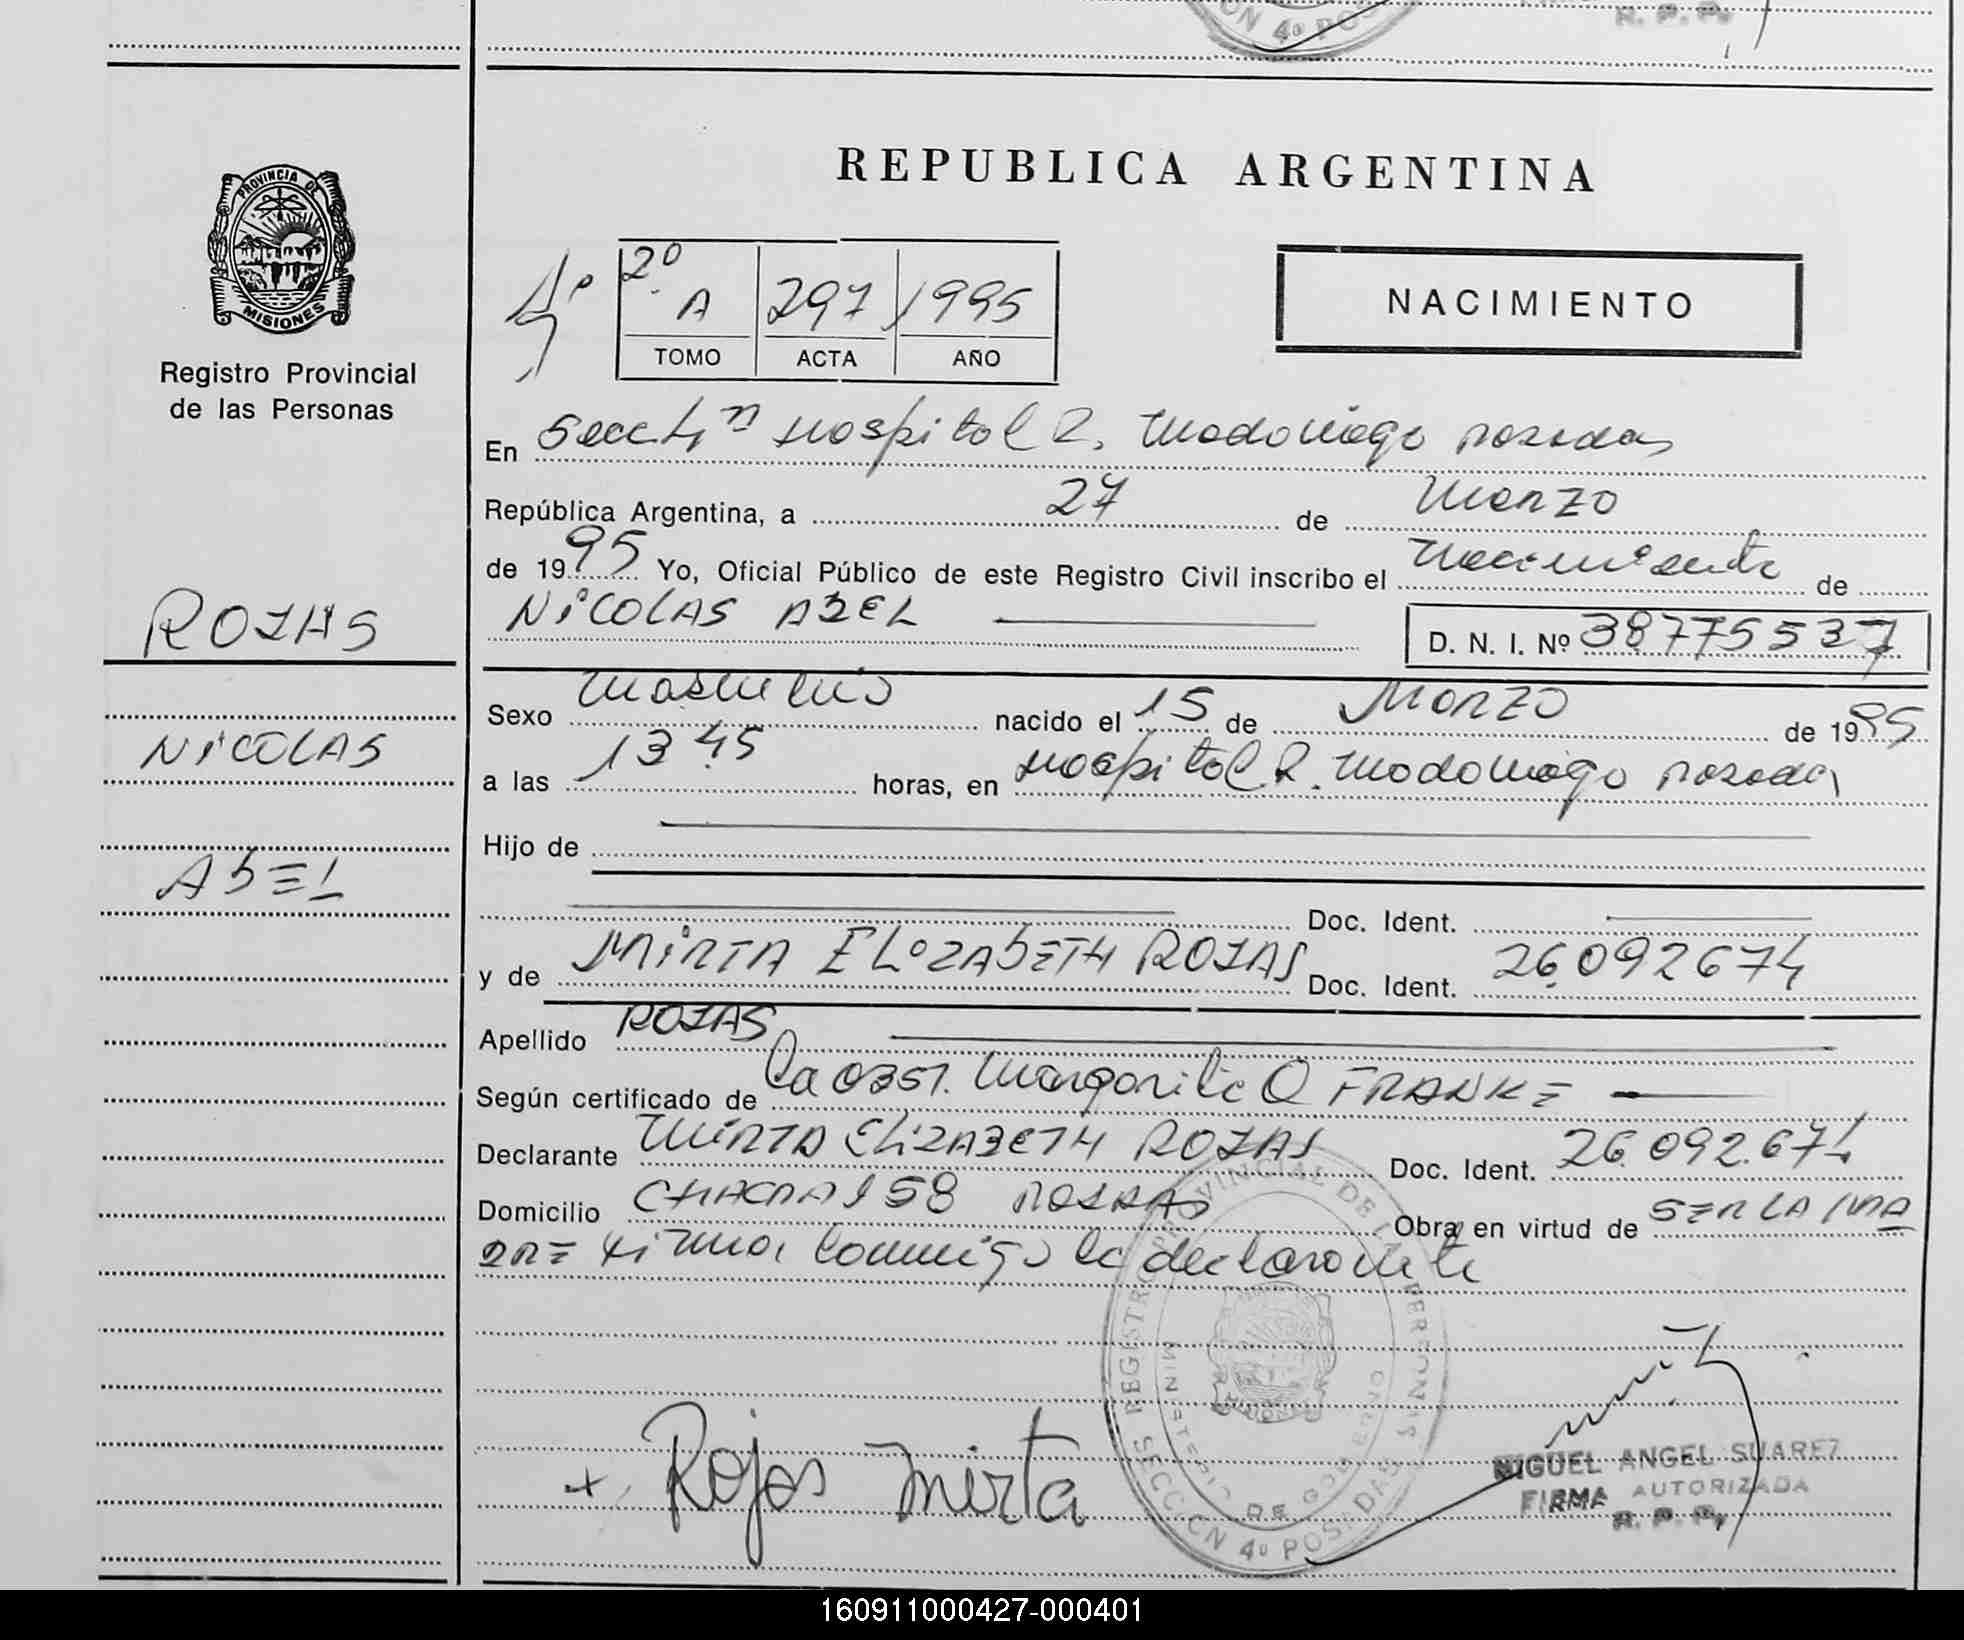 CCION 4º POS
R. P. P.
PROVINCIA DE
MISIONES
Registro Provincial
de las Personas
ROJAS
NICOLAS
ABEL
REPUBLICA ARGENTINA
4º
2º
A 297 1995
TOMO ACTA AÑO
NACIMIENTO
En Secc 4ª Hospital R. Madariaga Posadas
República Argentina, a 27 de Marzo
de 1995 Yo, Oficial Público de este Registro Civil inscribo el Nacimiento de
NICOLAS ABEL D. N. I. Nº 38775537
Sexo Masculino nacido el 15 de Marzo de 1995
a las 13.45 horas, en Hospital R. Madariaga Posadas
Hijo de
Doc. Ident.
y de MIRTA ELIZABETH ROJAS Doc. Ident. 26.092674
Apellido ROJAS
Según certificado de La OBST. Margarita O FRANKE
Declarante MIRTA ELIZABETH ROJAS Doc. Ident. 26.092.674
Domicilio CHACRA 158 POSADAS Obra en virtud de SER LA MA
DRE Firma conmigo la declarante
REGISTRO PROVINCIAL DE LAS PERSONAS
MINISTERIO DE GOBIERNO
SECCION 4º POSADAS
+ Rojas Mirta
MIGUEL ANGEL SUAREZ
FIRMA AUTORIZADA
R. P. P.
160911000427-000401